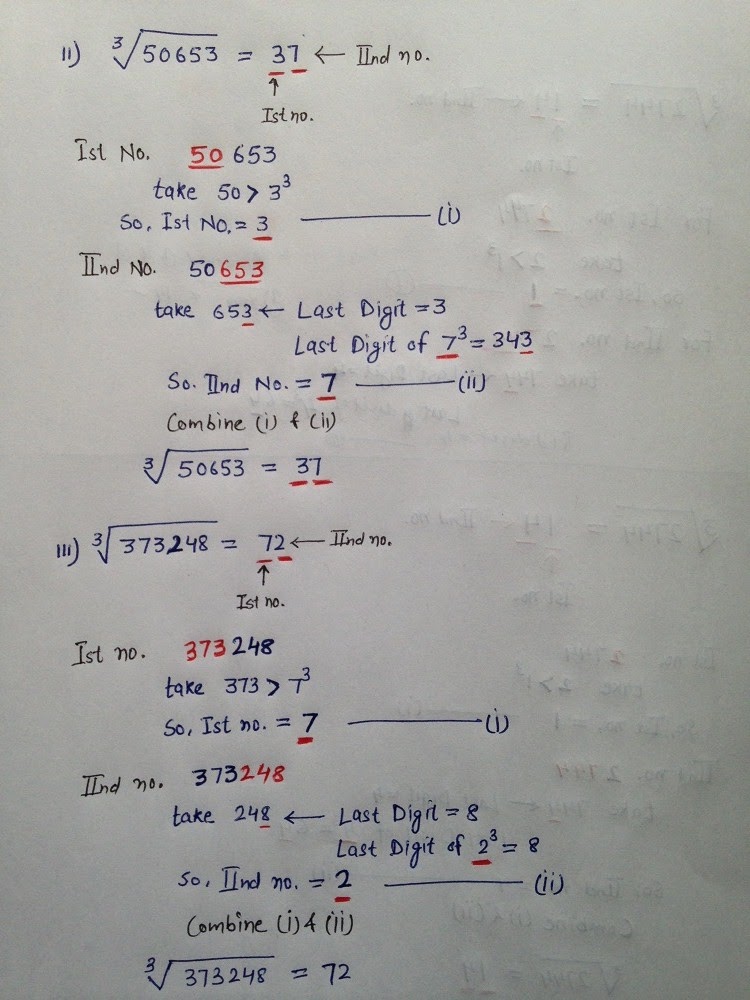 II) ∛50653 = 37 ← IInd no.
↑
Ist no.
Ist No. 50 653
take 50 > 3³
So, Ist No. = 3 ——— (i)
IInd No. 50 653
take 653 ← Last Digit = 3
Last Digit of 7³ = 343
So. IInd No. = 7 ——— (ii)
Combine (i) & (ii)
∛50653 = 37
III) ∛373248 = 72 ← IInd no.
↑
Ist no.
Ist no. 373 248
take 373 > 7³
So, Ist no. = 7 ——— (i)
IInd no. 373248
take 248 ← Last Digit = 8
Last Digit of 2³ = 8
So, IInd no. = 2 ——— (ii)
Combine (i) & (ii)
∛373248 = 72